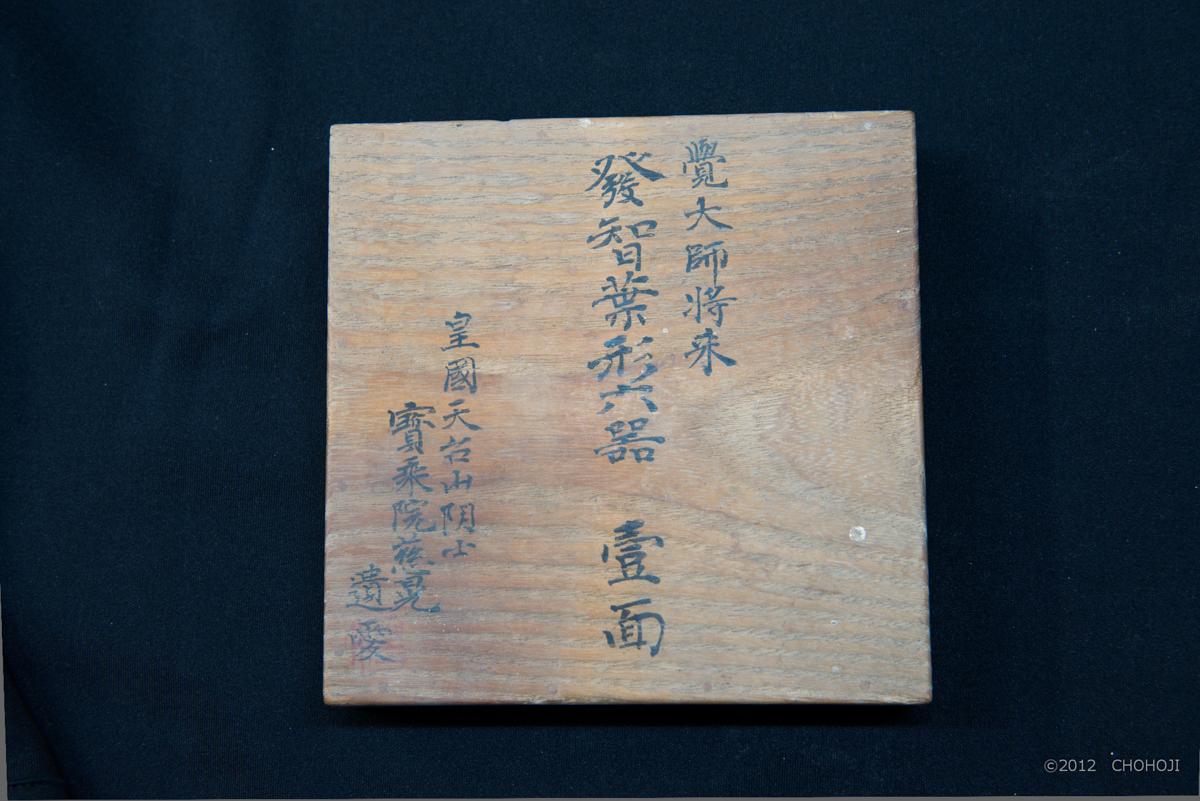 覺大師将来
發智葉形六器 壹面
皇國天台山阴士
寳乘院慈晃
遺愛
©2012 CHOHOJI